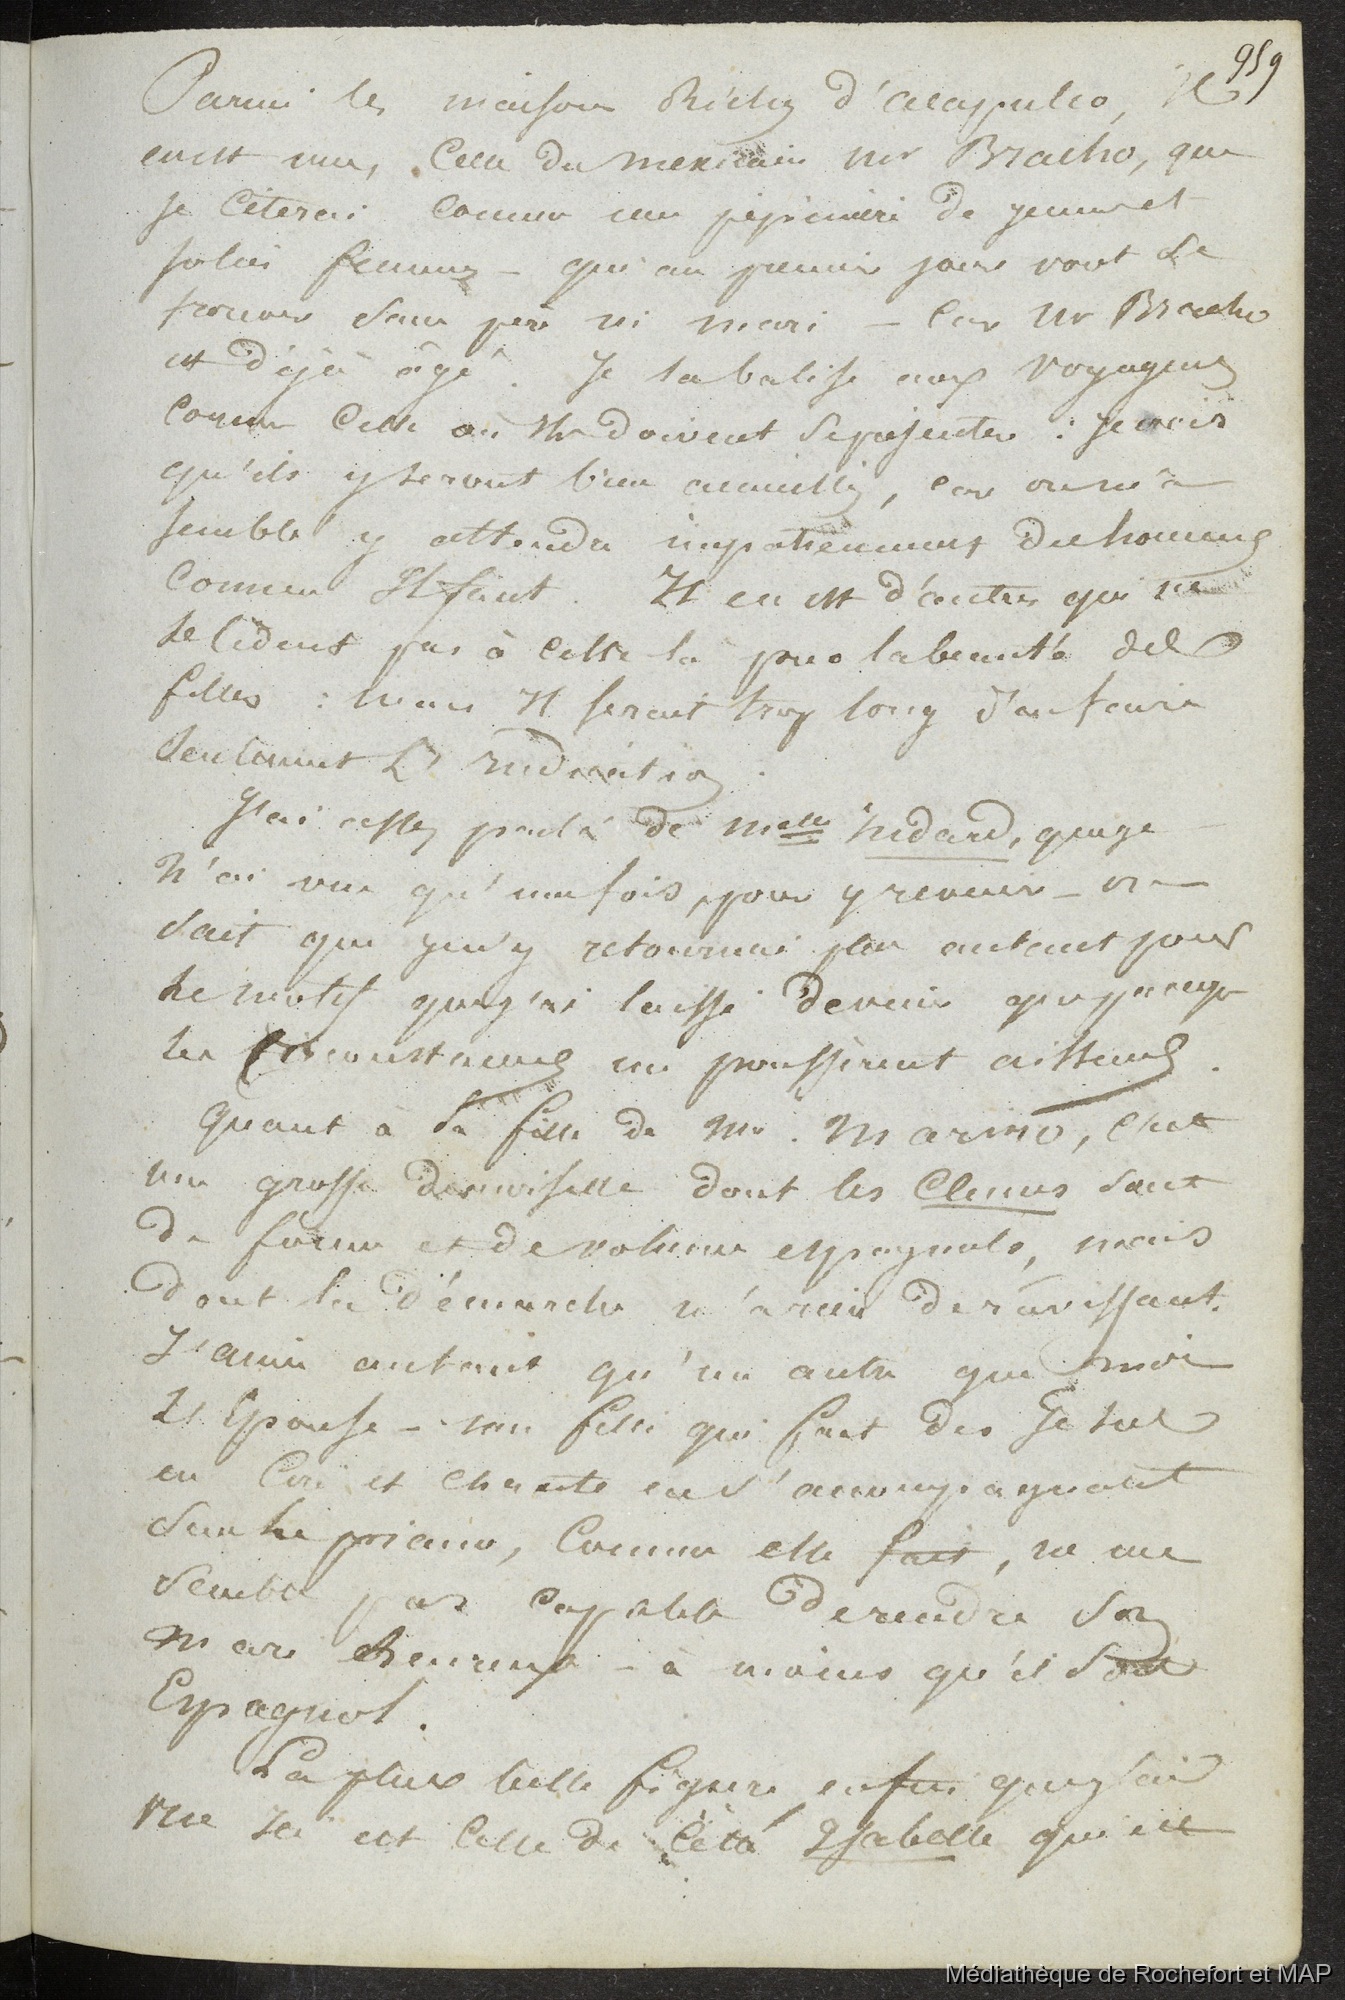 959
Parmi les maisons Riches d'acapulco, Il
en est une, Celle du mexicain mr Bracho, que
je Citerai comme une pépiniere de jeunes et
jolies femmes - qui au premier jour vont se
trouver sans père ni mari - Car Mr Bracho
est déjà âgé. Je la balise aux Voyageurs
Comme Celle où Ils doivent se présenter : je crois
qu'ils y seront bien accueillis, car on m'a
semblé y attendre impatiemment des hommes
Comme Il faut. Il en est d'autres qui ne
le Cèdent pas à Celle là pour la beauté des
filles : mais Il serait trop long d'en faire
seulement L'Indication.
J'ai assez parlé de melle , que je
n'ai vue qu'une fois, pour y revenir - on
sait que je n'y retournai pas autant pour
le motif que j'ai laissé deviner que parceque
les Circonstances me poussèrent ailleurs.
Quant à la fille de Mr. Marino, C'est
une grosse demoiselle dont les Clunes sont
de forme et de volume espagnols, mais
dont la démarche n'a rien de ravissant.
J'aime autant qu'un autre que moi
L'Epouse - une fille qui fait des
en et chante en s'accompagnant
sur le piano, Comme elle fait, ne me
semble pas capable de rendre son
mari heureux - à moins qu'il soit
Espagnol.
La plus belle figure enfin que j'ai
vue Ici est Celle de Isabelle qui est
Médiathèque de Rochefort et MAP